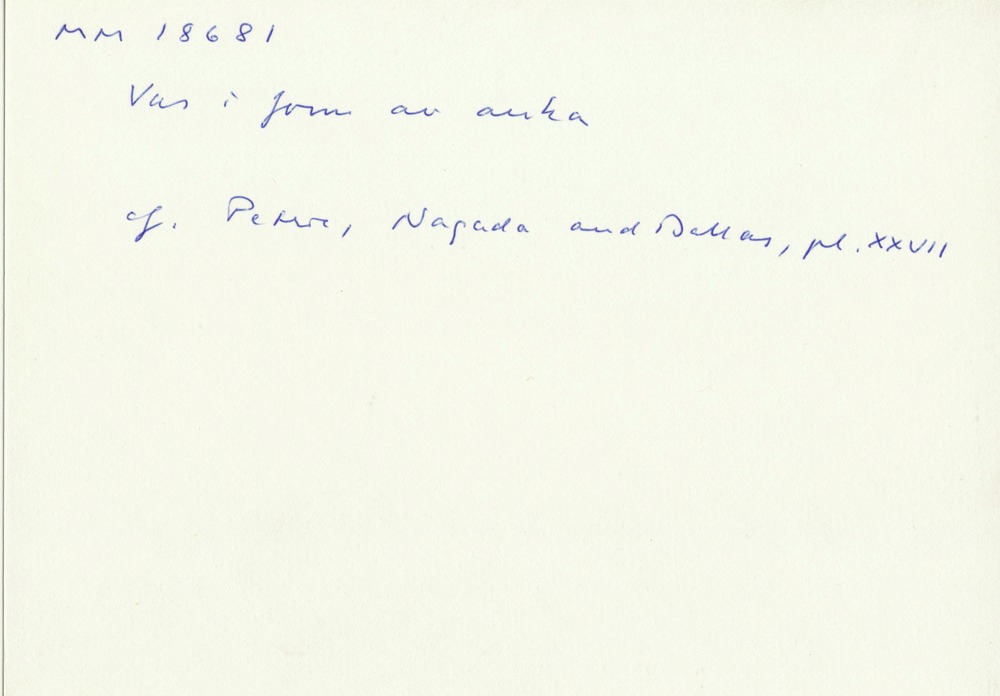 MM 18681
Vas i form av anka
cf. Petrie, Nagada and Ballas, pl. XXVII